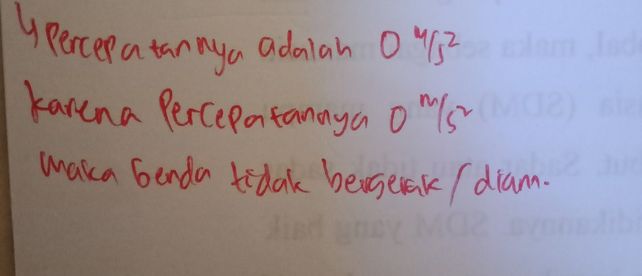 ↳ Percepatannya adalah 0 m/s²
karena Percepatannya 0 m/s²
maka benda tidak bergerak / diam.